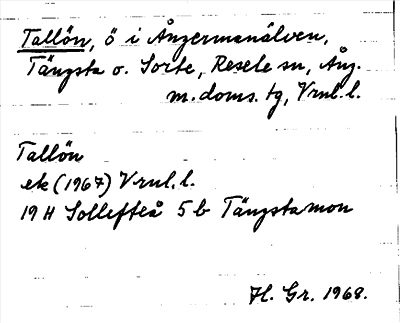 Tallön, ö i Ångermanälven,
Tängsta o. Sorte, Resele sn, Ång.
m. doms. tg, Vrnl. l.
Tallön
ek (1967) Vrnl. l.
19 H Sollefteå 5 b Tängstamon
H. Gr. 1968.